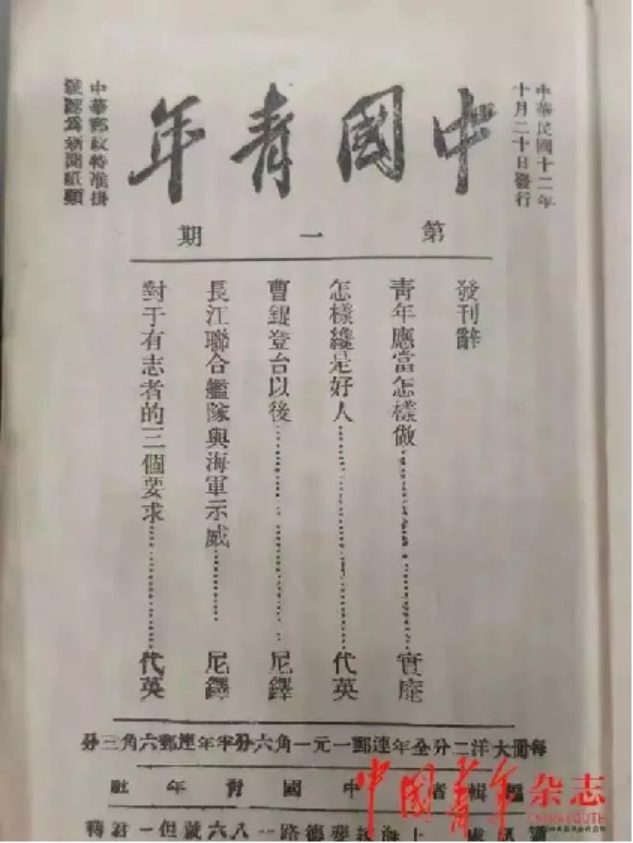 中華民國十二年
十月二十日發行
中國青年
中華郵政特准掛
號認爲新聞紙類
第一期
發刊辭
青年應當怎樣做 實庵
怎樣纔是好人 代英
曹錕登台以後 尼鐸
長江聯合艦隊與海軍示威 尼鐸
對于有志者的三個要求 代英
每冊大洋二分全年連郵一元一角六分半年連郵六角三分
編輯者 中國青年社
上海 斐德路一八六號但一 轉
中国青年杂志
CHINA YOUTH